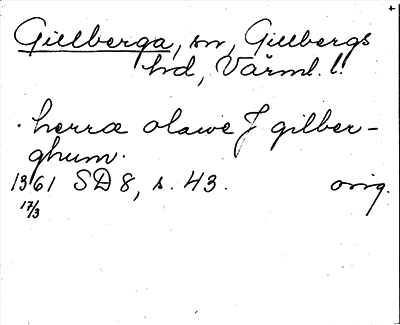 Gillberga, sn, Gillbergs
hd, Värml. l.
. herra olawe J gilber-
ghum.
1361 SD 8, s. 43. orig.
17/3